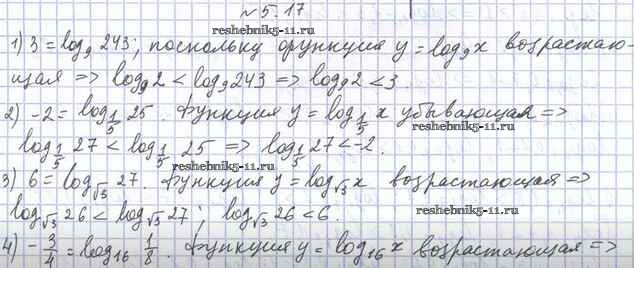 № 5.17
reshebnik5-11.ru
1) 3 = log₉ 243; поскольку функция y = log₉ x возрастаю-
reshebnik5-11.ru
щая => log₉ 2 < log₉ 243 => log₉ 2 < 3.
2) -2 = log_{1/5} 25. Функция y = log_{1/5} x убывающая =>
reshebnik5-11.ru
log_{1/5} 27 < log_{1/5} 25 => log_{1/5} 27 < -2.
reshebnik5-11.ru
3) 6 = log_{√3} 27. Функция y = log_{√3} x возрастающая =>
log_{√3} 26 < log_{√3} 27; log_{√3} 26 < 6.
reshebnik5-11.ru
4) -3/4 = log₁₆ 1/8. Функция y = log₁₆ x возрастающая =>
reshebnik5-11.ru